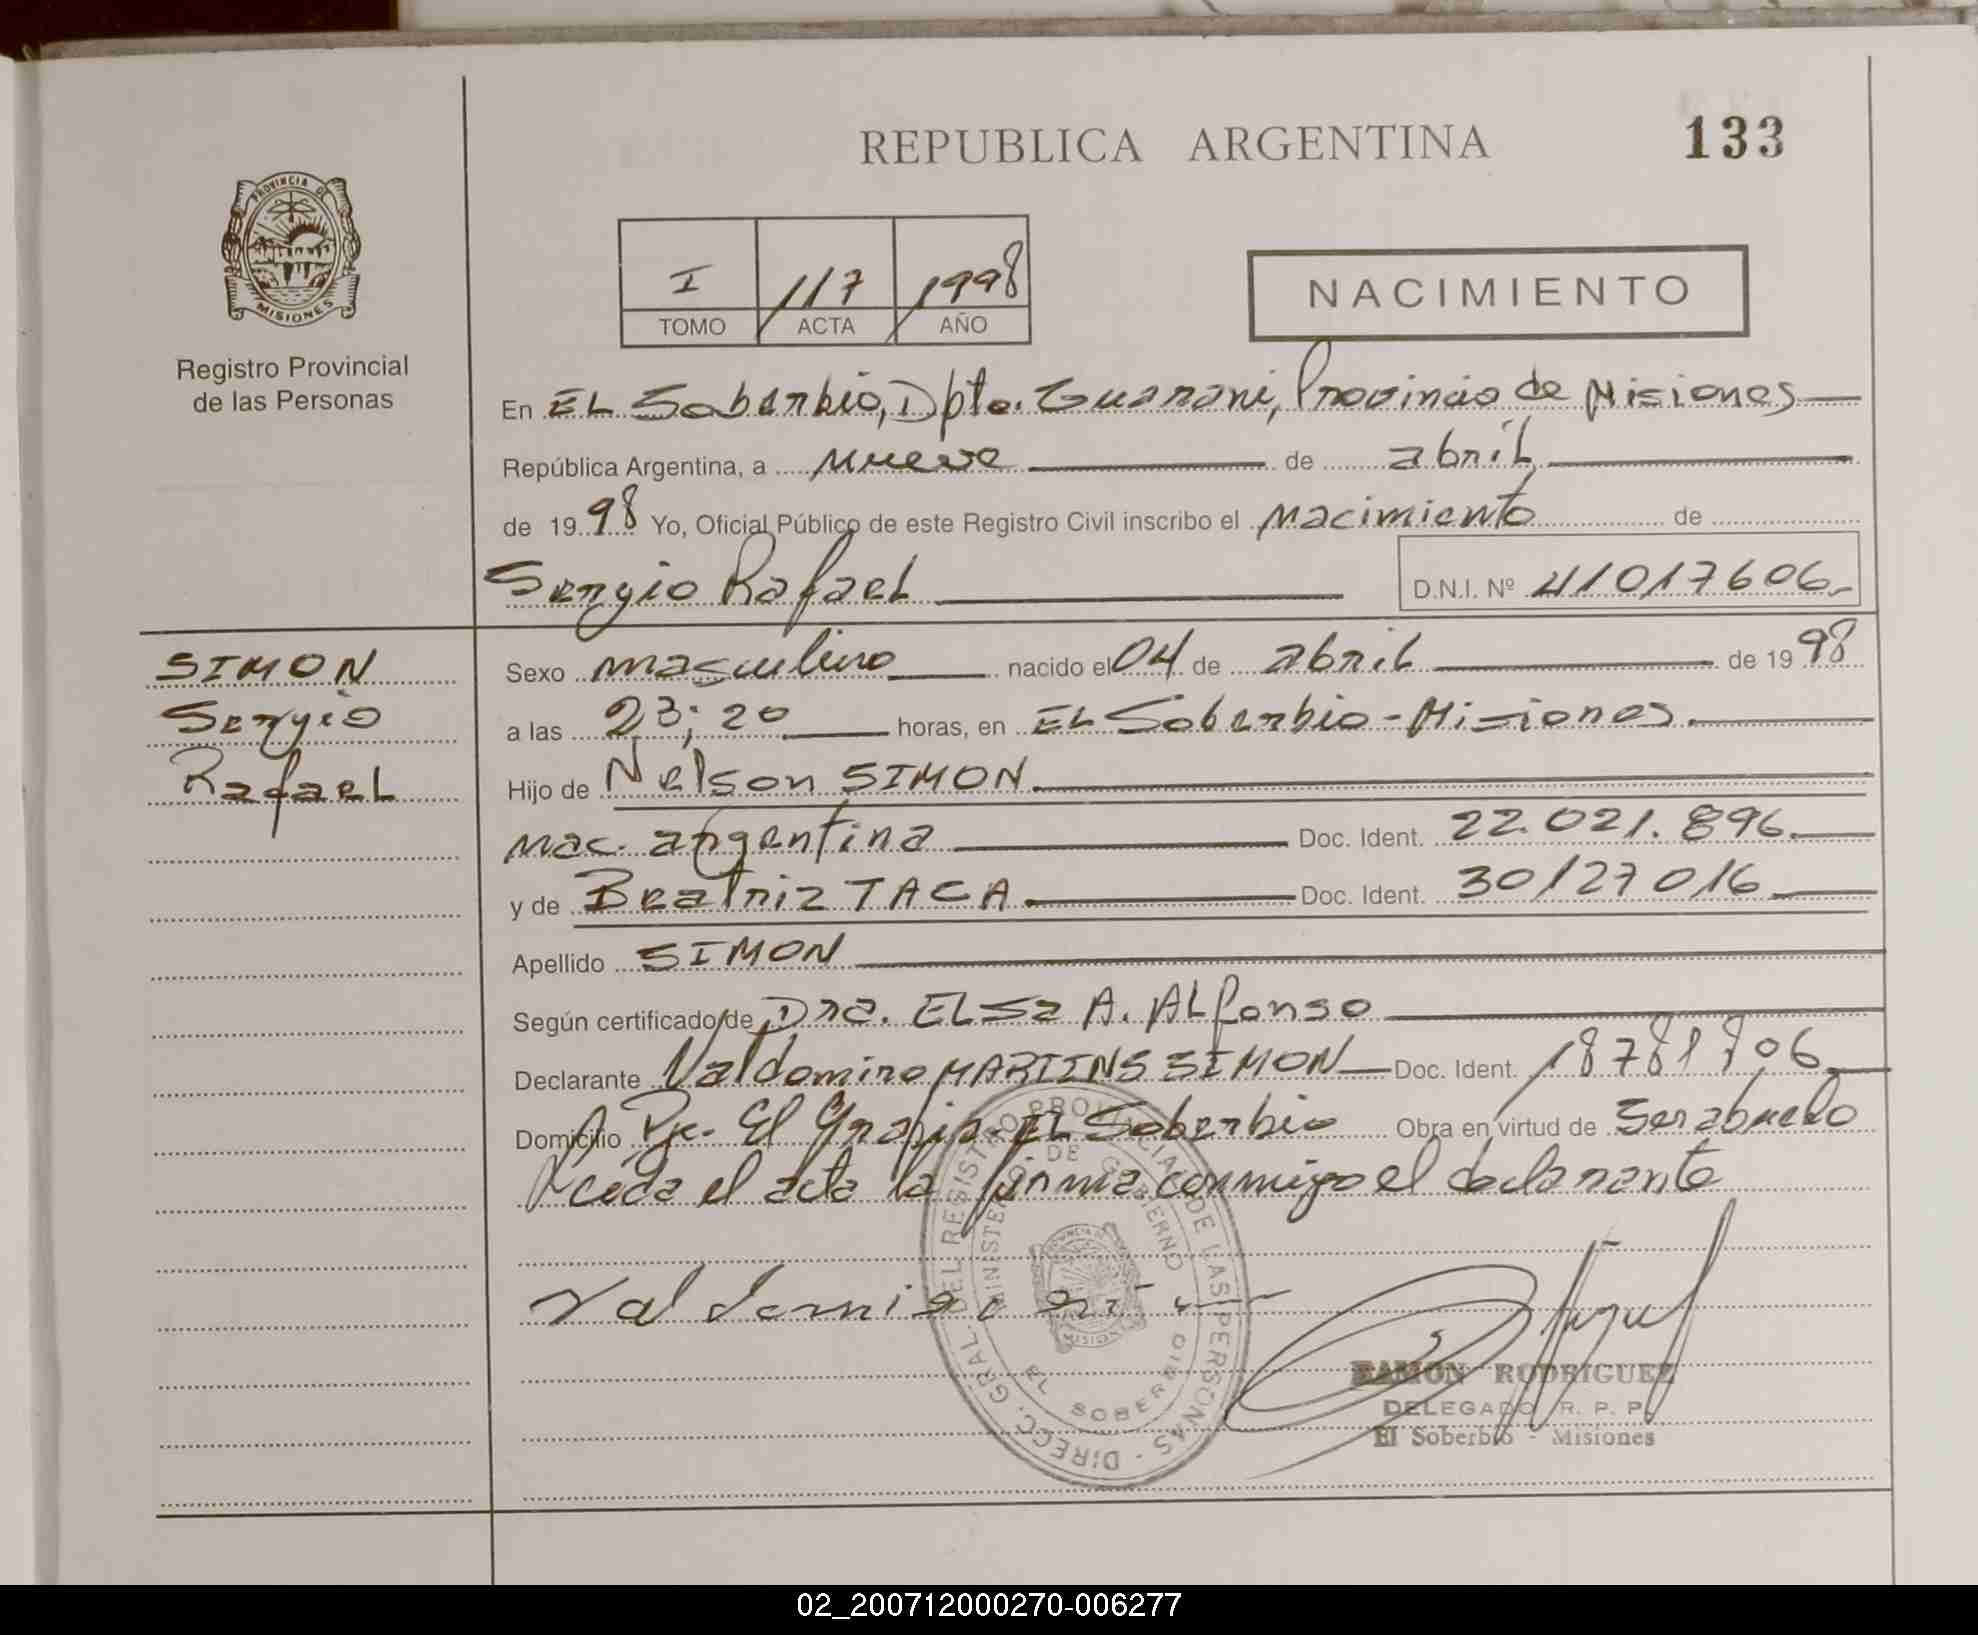 REPUBLICA ARGENTINA
133
PROVINCIA DE
MISIONES
Registro Provincial
de las Personas
I 117 1998
TOMO ACTA AÑO
NACIMIENTO
En EL Soberbio, Dpto. Guarani, Provincia de Misiones
República Argentina, a nueve de abril
de 1998 Yo, Oficial Público de este Registro Civil inscribo el nacimiento de
Sergio Rafael
D.N.I. Nº 41017606
SIMON
Sergio
Rafael
Sexo masculino nacido el 04 de abril de 1998
a las 23:20 horas, en EL Soberbio - Misiones.
Hijo de Nelson SIMON
nac. argentina Doc. Ident. 22.021.896.
y de Beatriz TACA Doc. Ident. 30127016
Apellido SIMON
Según certificado de Dra. ELsa A. ALfonso
Declarante Valdomiro MARTINS SIMON Doc. Ident.
Domicilio Pje. El EL Soberbio Obra en virtud de ser abuelo
el acta la firma conmigo el declarante
DIRECC. GRAL. DEL REGISTRO PROVINCIAL DE LAS PERSONAS
MINISTERIO DE GOBIERNO
EL SOBERBIO
RAMON RODRIGUEZ
DELEGADO R. P. P.
El Soberbio - Misiones
02_200712000270-006277